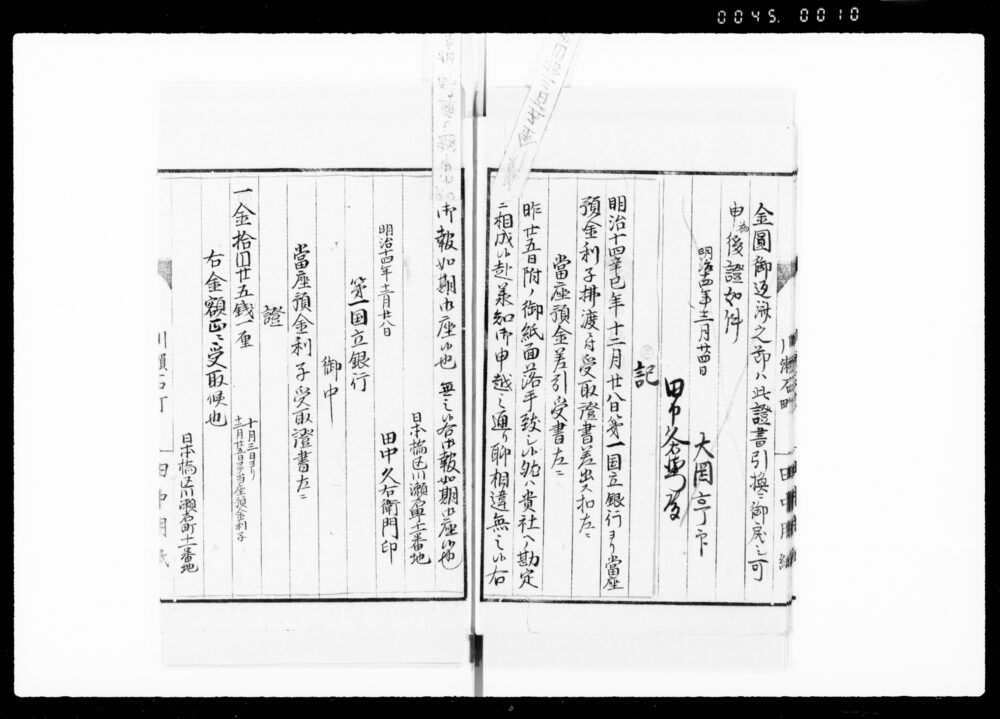 0045. 0010
金圓御返済之節ハ此證書引換ニ御戻シ可
申候為後證如件
明治十四年十二月廿四日
大岡亨印
田中久右衛門殿
記
明治十四辛巳年十二月廿八日第一国立銀行ヨリ當座
預金利子拂渡ニ付受取證書差出ス扣左ニ
當座預金差引受書左ニ
昨廿五日附ノ御紙面落手致シ候然ハ貴社ヘノ勘定
ニ相成候赴義知御申越之通リ聊相違無之候右
御報如期御座候也
無之候右御報如期御座候也
日本橋区川瀬石町十一番地
明治十四年十二月廿八日
田中久右衛門印
第一国立銀行
御中
當座預金利子受取證書左ニ
證
一金拾四円廿五銭一厘
十月三日ヨリ
十二月廿五日マテ當座預金利子
右金額正ニ受取候也
日本橋区川瀬石町十一番地
川瀬石町
田中用紙